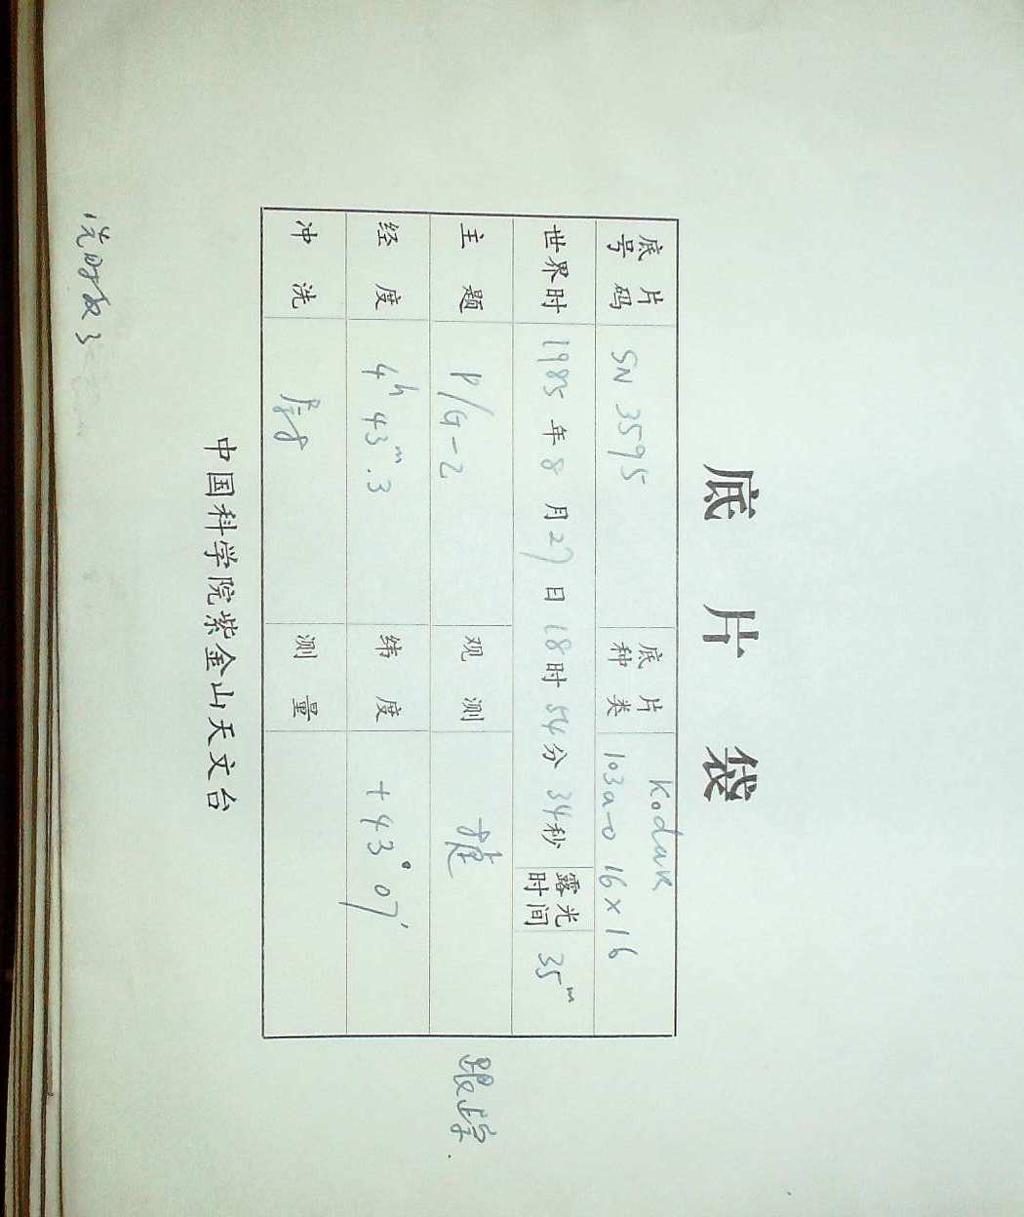 底片袋
底片号码 SN 3595 底片种类 Kodak 103a-0 16×16
世界时 1985年8月27日18时54分34秒 露光时间 35m
主题 P/G-Z 观测
经度 4h 43m.3 纬度 +43°07′
冲洗 测量
中国科学院紫金山天文台
跟踪